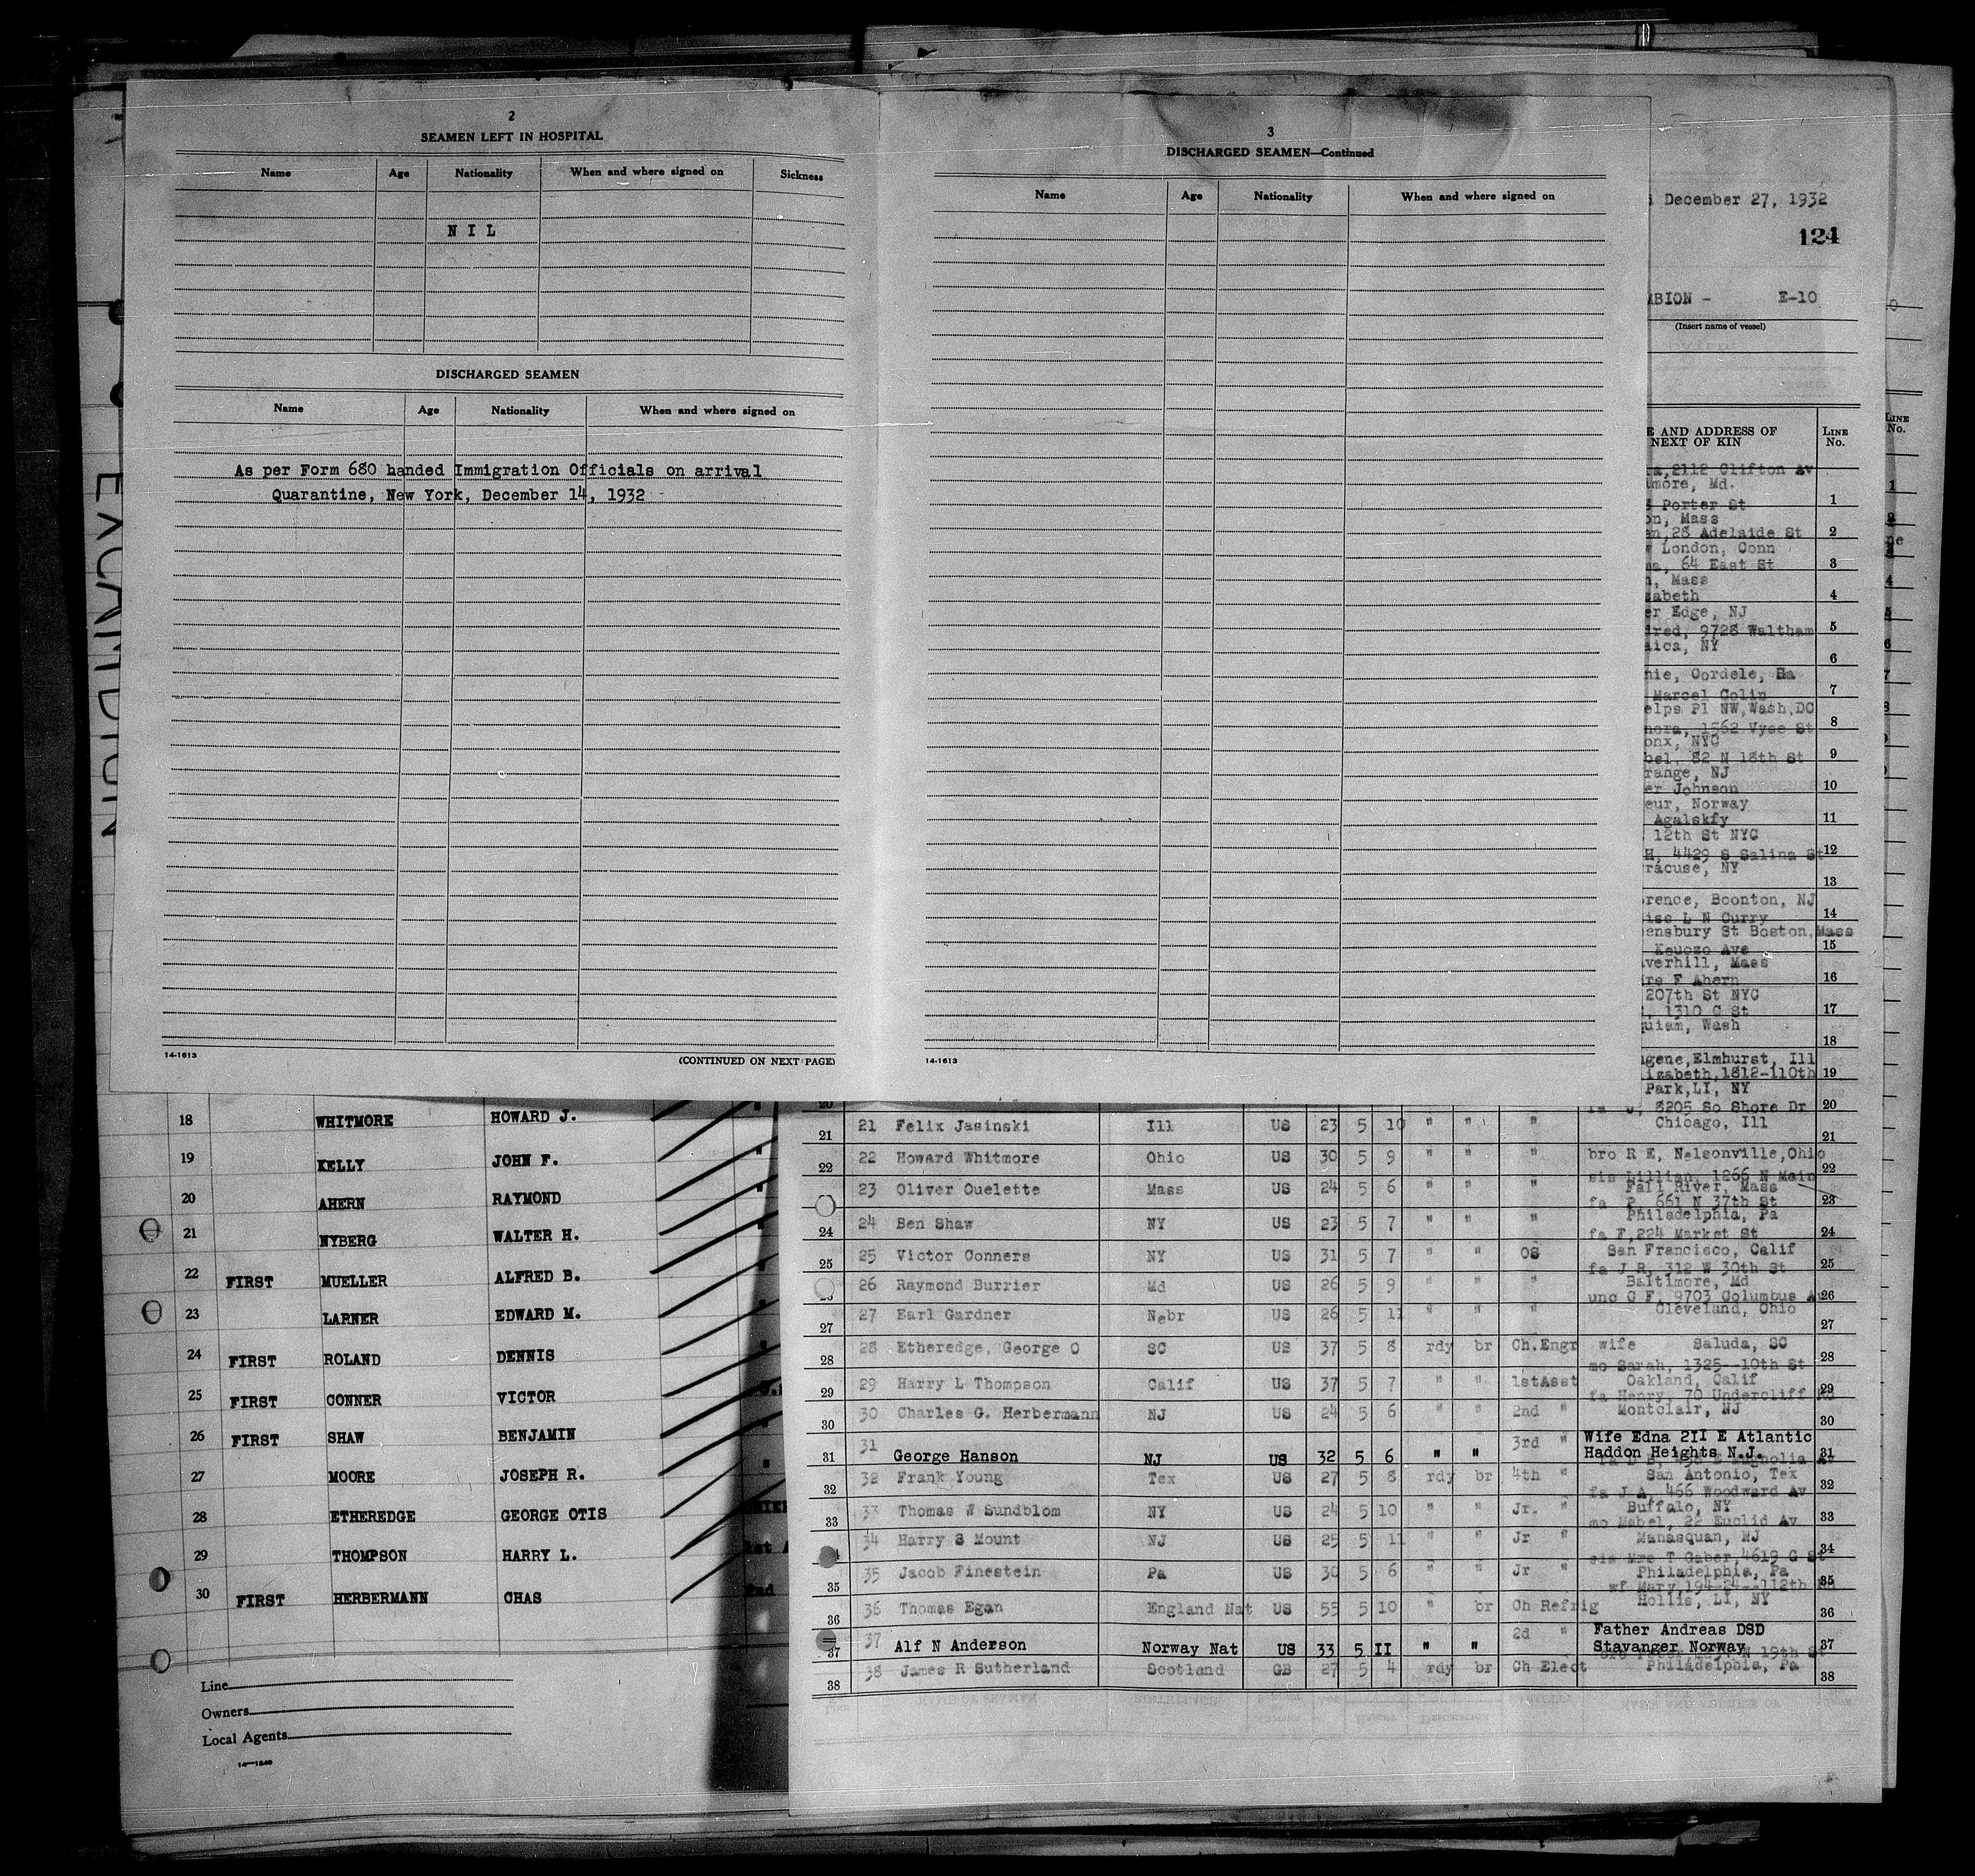 2
SEAMEN LEFT IN HOSPITAL
Name Age Nationality When and where signed on Sickness
N I L
DISCHARGED SEAMEN
Name Age Nationality When and where signed on
As per Form 680 handed Immigration Officials on arrival
Quarantine, New York, December 14, 1932 -
14-1613 (CONTINUED ON NEXT PAGE)
3
DISCHARGED SEAMEN—Continued
Name Age Nationality When and where signed on
14-1613
December 27, 1932
124
E-10
(Insert name of vessel)
AND ADDRESS OF
NEXT OF KIN
LINE
No.
LINE
No.
2112 Clifton Av
Md.
1
Porter St
Mass
28 Adelaide St 2
London, Conn
64 East St 3
Mass
4
Edge, NJ
9728 Waltham 5
NY
6
Cordele,
Marcel Colin 7
Pl NW, Wash, DC
1562 Vyse St 8
NYC
82 N 18th St 9
NJ
Johnson 10
Norway
Agalskfy 11
12th St NYC
H, 4429 S Salina St 12
NY
13
Boonton, NJ
L N Curry 14
St Boston, Mass
Keuozo Ave 15
Mass
F Ahern 16
207th St NYC
1310 C St 17
Wash
18
Elmhurst, Ill
1812-110th 19
Park, LI, NY
8205 So Shore Dr 20
Chicago, Ill
18 WHITMORE HOWARD J.
19 KELLY JOHN F.
20 AHERN RAYMOND
21 NYBERG WALTER H.
22 FIRST MUELLER ALFRED B.
23 LARNER EDWARD M.
24 FIRST ROLAND DENNIS
25 FIRST CONNER VICTOR
26 FIRST SHAW BENJAMIN
27 MOORE JOSEPH R.
28 ETHEREDGE GEORGE OTIS
29 THOMPSON HARRY L.
30 FIRST HERBERMANN CHAS
Line
Owners
Local Agents
14-1240
21 21 Felix Jasinski Ill US 23 5 10 " " " 21
22 22 Howard Whitmore Ohio US 30 5 9 " " " bro R E, Nelsonville, Ohio 22
sis Lillian, 1266 N Main
23 Oliver Ouelette Mass US 24 5 6 " " " Fall River, Mass 23
fa P, 661 N 37th St
24 24 Ben Shaw NY US 23 5 7 " " " Philadelphia, Pa 24
fa F, 224 Market St
25 25 Victor Conners NY US 31 5 7 " " OS San Francisco, Calif 25
fa J R, 312 W 30th St
26 Raymond Burrier Md US 26 5 9 " " " Baltimore, Md 26
unc G F, 9703 Columbus Av
27 27 Earl Gardner Nebr US 26 5 11 " " " Cleveland, Ohio 27
28 28 Etheredge, George O SC US 37 5 8 rdy br Ch.Engr wife Saluda, SC 28
mo Sarah, 1325--10th St
29 29 Harry L Thompson Calif US 37 5 7 " " 1stAsst Oakland, Calif 29
fa Henry, 70 Undercliff Rd
30 30 Charles G. Herbermann NJ US 24 5 6 " " 2nd " Montclair, NJ 30
31 31 George Hanson NJ US 32 5 6 " " 3rd " Wife Edna 2II E Atlantic
Haddon Heights N.J. 31
32 32 Frank Young Tex US 27 5 8 rdy br 4th " San Antonio, Tex 32
fa J A, 466 Woodward Av
33 33 Thomas W Sundblom NY US 24 5 10 " " Jr. " Buffalo, NY 33
mo Mabel, 22 Euclid Av
34 Harry S Mount NJ US 25 5 11 " " Jr " Manasquan, NJ 34
sis Mrs T Gaber, 4619 C St
35 35 Jacob Finestein Pa US 30 5 6 " " Jr " Philadelphia, Pa 35
wf Mary, 194-24--112th Rd
36 36 Thomas Egan England Nat US 55 5 10 " br Ch Refrig Hollis, LI, NY 36
37 37 Alf N Anderson Norway Nat US 33 5 II " " 2d " Father Andreas DSD
Stavanger Norway 37
38 38 James R Sutherland Scotland GB 27 5 4 rdy br Ch Elect Philadelphia, Pa 38